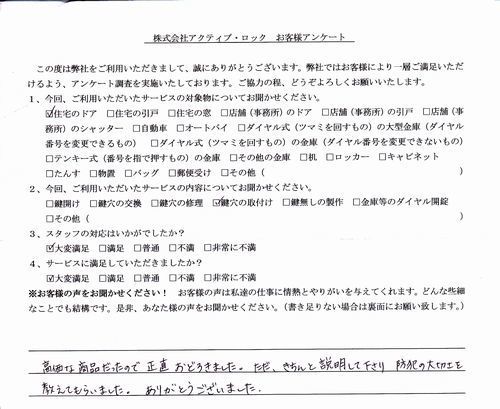 株式会社アクティブ・ロック　お客様アンケート
この度は弊社をご利用いただきまして、誠にありがとうございます。弊社ではお客様により一層ご満足いただ
けるよう、アンケート調査を実施いたしております。ご協力の程、どうぞよろしくお願いいたします。
1、今回、ご利用いただいたサービスの対象物についてお聞かせください。
☑住宅のドア　□住宅の引戸　□住宅の窓　□店舗（事務所）のドア　□店舗（事務所）の引戸　□店舗（事
務所）のシャッター　□自動車　□オートバイ　□ダイヤル式（ツマミを回すもの）の大型金庫（ダイヤル
番号を変更できるもの）　□ダイヤル式（ツマミを回すもの）の金庫（ダイヤル番号を変更できないもの）
□テンキー式（番号を指で押すもの）の金庫　□その他の金庫　□机　□ロッカー　□キャビネット
□たんす　□物置　□バッグ　□郵便受け　□その他（　　　）
2、今回、ご利用いただいたサービスの内容についてお聞かせください。
□鍵開け　□鍵穴の交換　□鍵穴の修理　☑鍵穴の取付け　□鍵無しの製作　□金庫等のダイヤル開錠
□その他（　　　）
3、スタッフの対応はいかがでしたか？
☑大変満足　□満足　□普通　□不満　□非常に不満
4、サービスに満足していただきましたか？
☑大変満足　□満足　□普通　□不満　□非常に不満
※お客様の声をお聞かせください！　お客様の声は私達の仕事に情熱とやりがいを与えてくれます。どんな些細
なことでも結構です。是非、あなた様の声をお聞かせください。（書き足りない場合は裏面にお願い致します。）
高価な商品だったので 正直 おどろきました。ただ、きちんと説明して下さり 防犯の大切さを
教えてもらいました。 ありがとうございました。